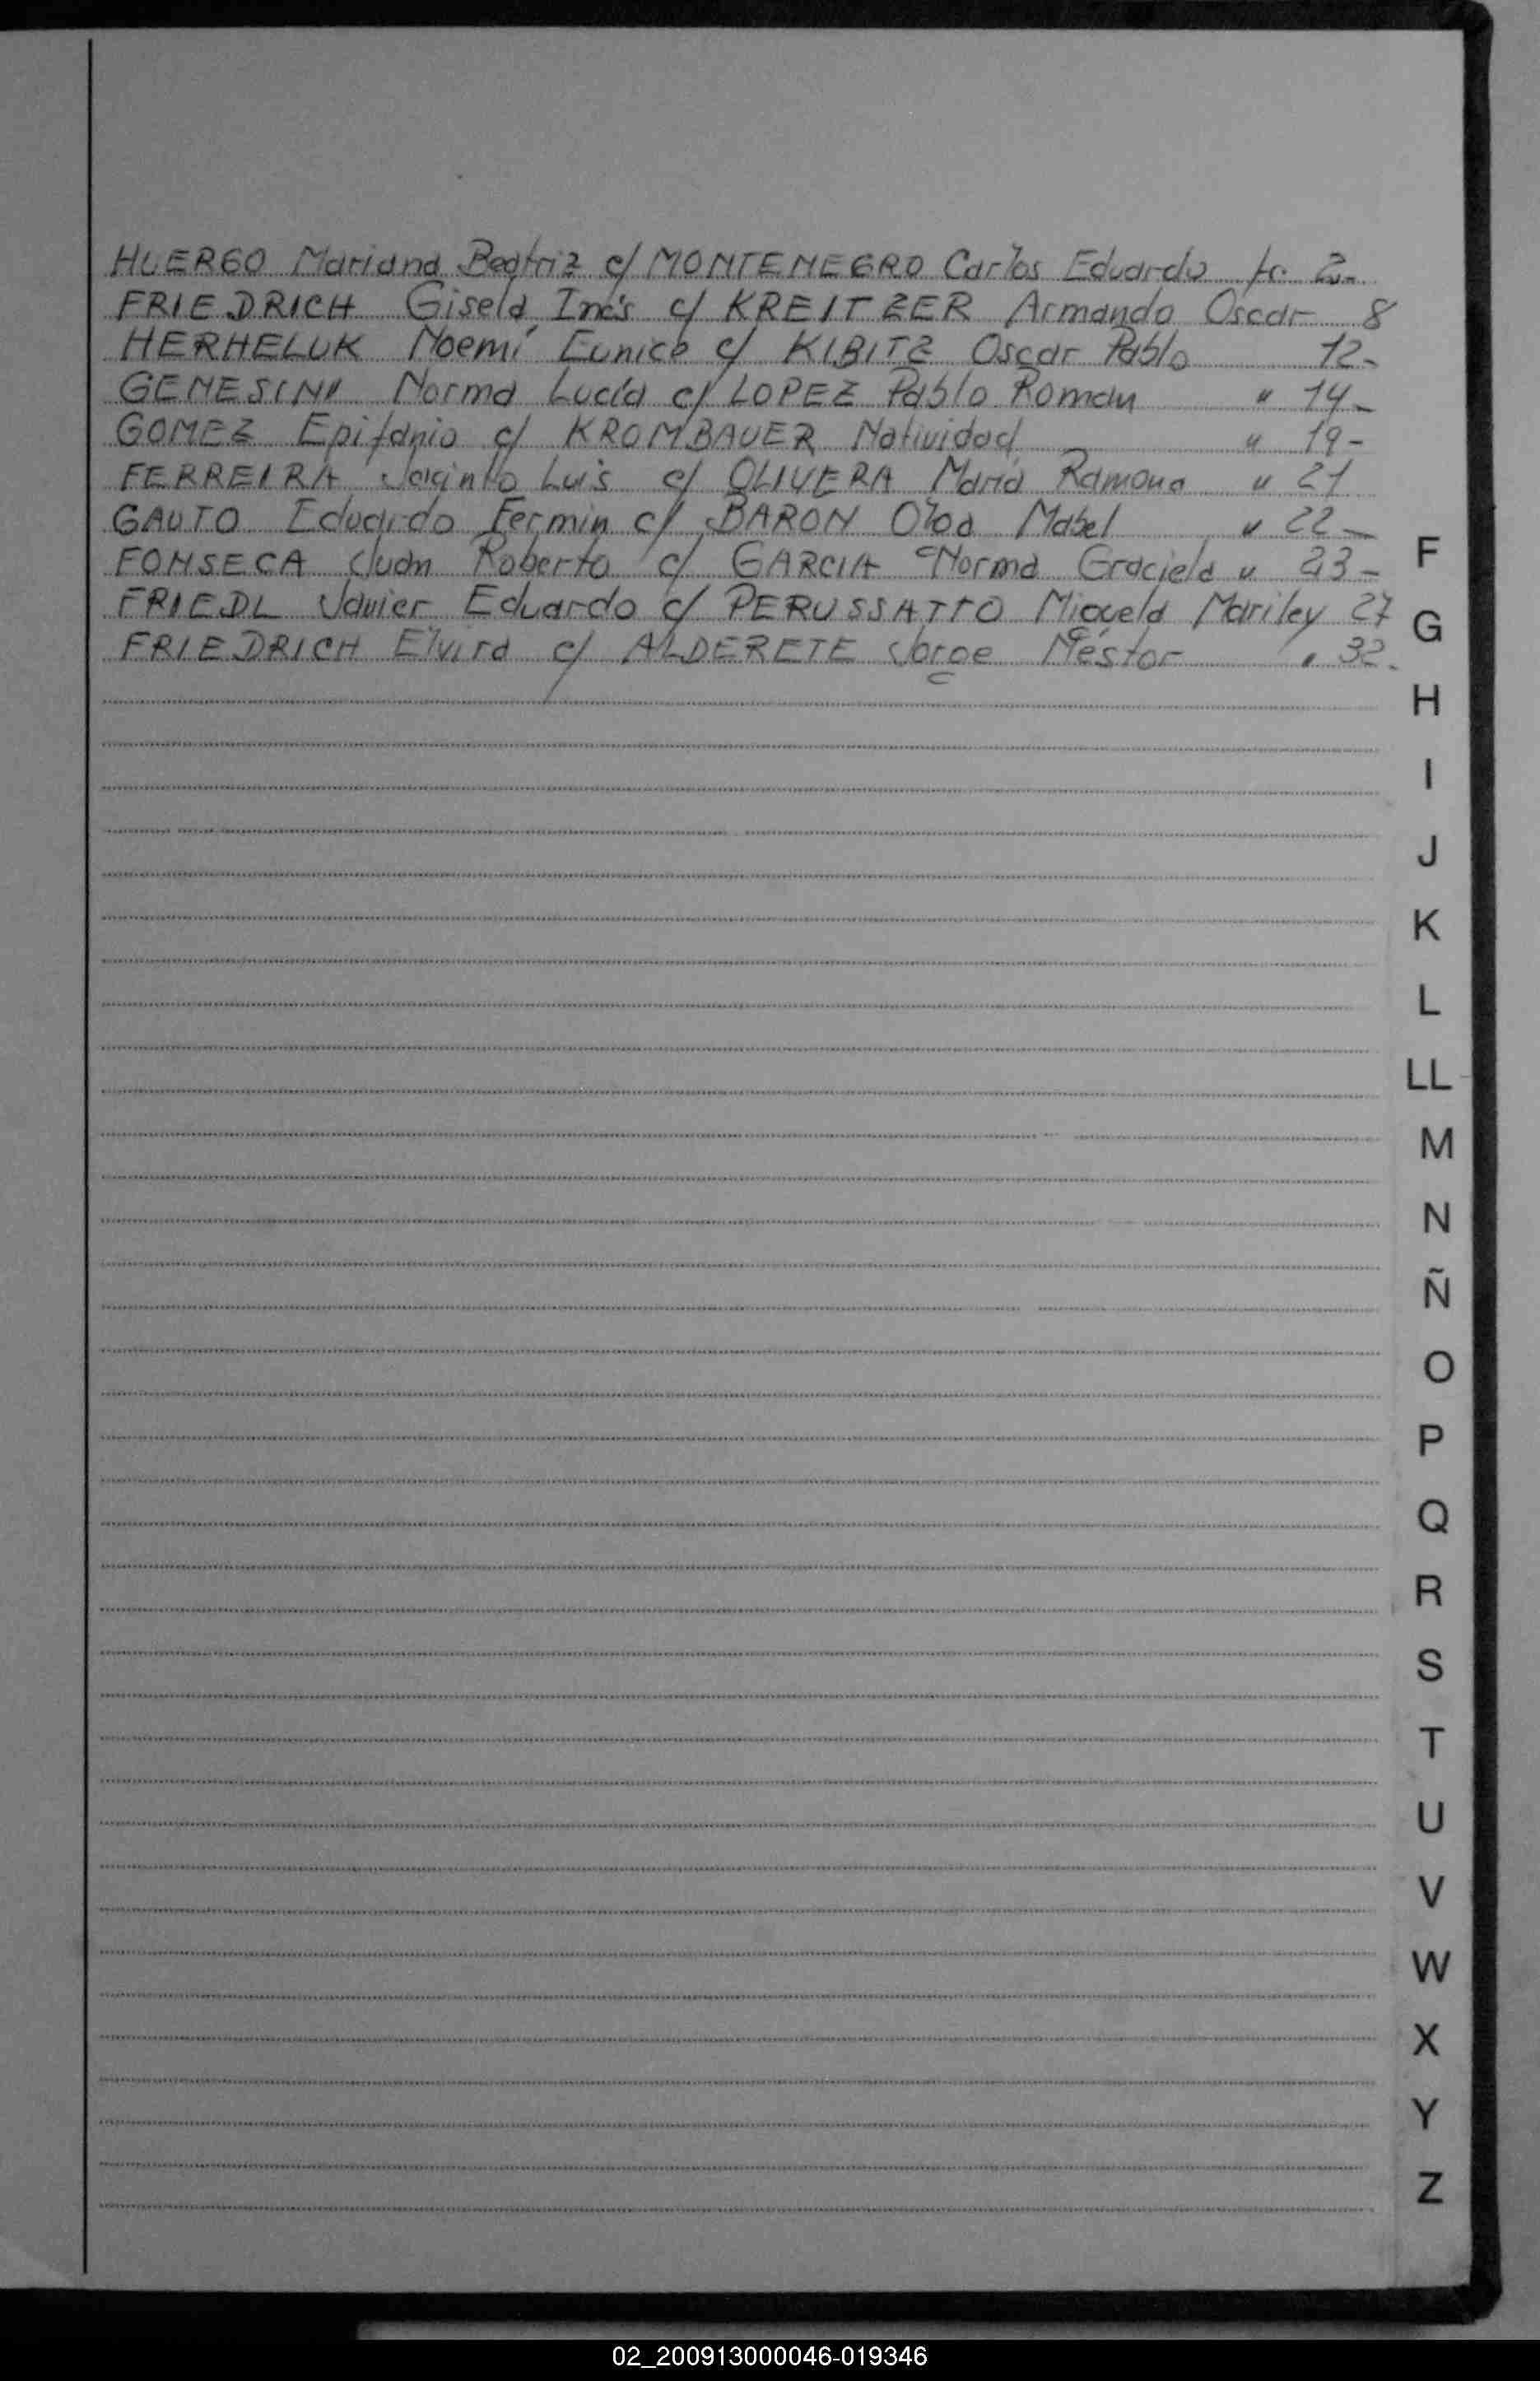 HUERGO Mariana Beatriz c/ MONTENEGRO Carlos Eduardo fs. 2-
FRIEDRICH Gisela Inés c/ KREITZER Armando Oscar 8
HERHELUK Noemí Eunice c/ KIBITZ Oscar Pablo 12-
GENESINI Norma Lucía c/ LOPEZ Pablo Roman " 14-
GOMEZ Epifanio c/ KROMBAUER Natividad " 19-
FERREIRA Jacinto Luis c/ OLIVERA María Ramona " 21
GAUTO Eduardo Fermin c/ BARON Olga Mabel " 22-
FONSECA Juan Roberto c/ GARCIA Norma Graciela " 23-
FRIEDL Javier Eduardo c/ PERUSSATTO Miguela Mariley 27
FRIEDRICH Elvira c/ ALDERETE Jorge Néstor " 32.
F
G
H
I
J
K
L
LL
M
N
Ñ
O
P
Q
R
S
T
U
V
W
X
Y
Z
02_200913000046-019346